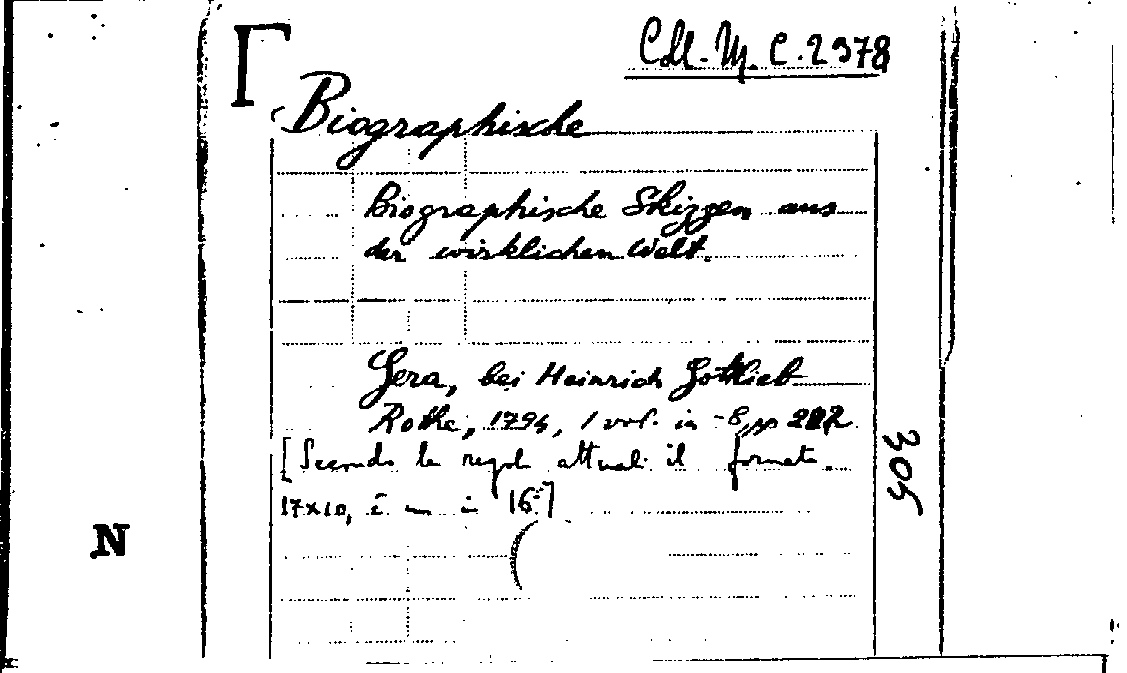 Coll. M. C. 2378
Biographische
Biographische Skizzen aus
der wirklichen Welt.
Gera, bei Heinrich Gottlieb
Rothe, 1794, 1 vol. in -8, pp
[Secondo le regole attuali il formato
17x10, è un in 16°]
305
N